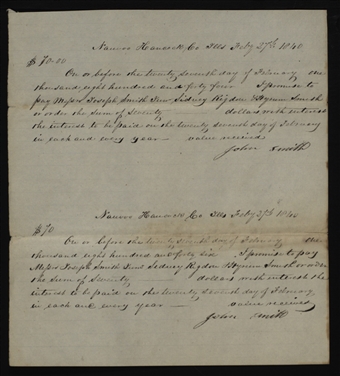 Nauvoo Hancock Co Ills Feby 27th 1840
$70.00
On or before the twenty seventh day of February one
thousand eight hundred and forty four I promise to
pay Messrs Joseph Smith Junr Sidney Rigdon & Hyrum Smith
or order the Sum of Seventy dollars with interest
the interest to be paid on the twenty seventh day of February
in each and every year — value received
John Smith
Nauvoo Hancock Co Ills Feby 27th 1840
$70
On or before the twenty seventh day of February one
thousand eight hundred and forty six I promise to pay
Messrs Joseph Smith Junr Sidney Rigdon & Hyrum Smith or order
the Sum of Seventy dollars with interest the
interest to be paid on the twenty seventh day of February
in each and every year — value received
John Smith